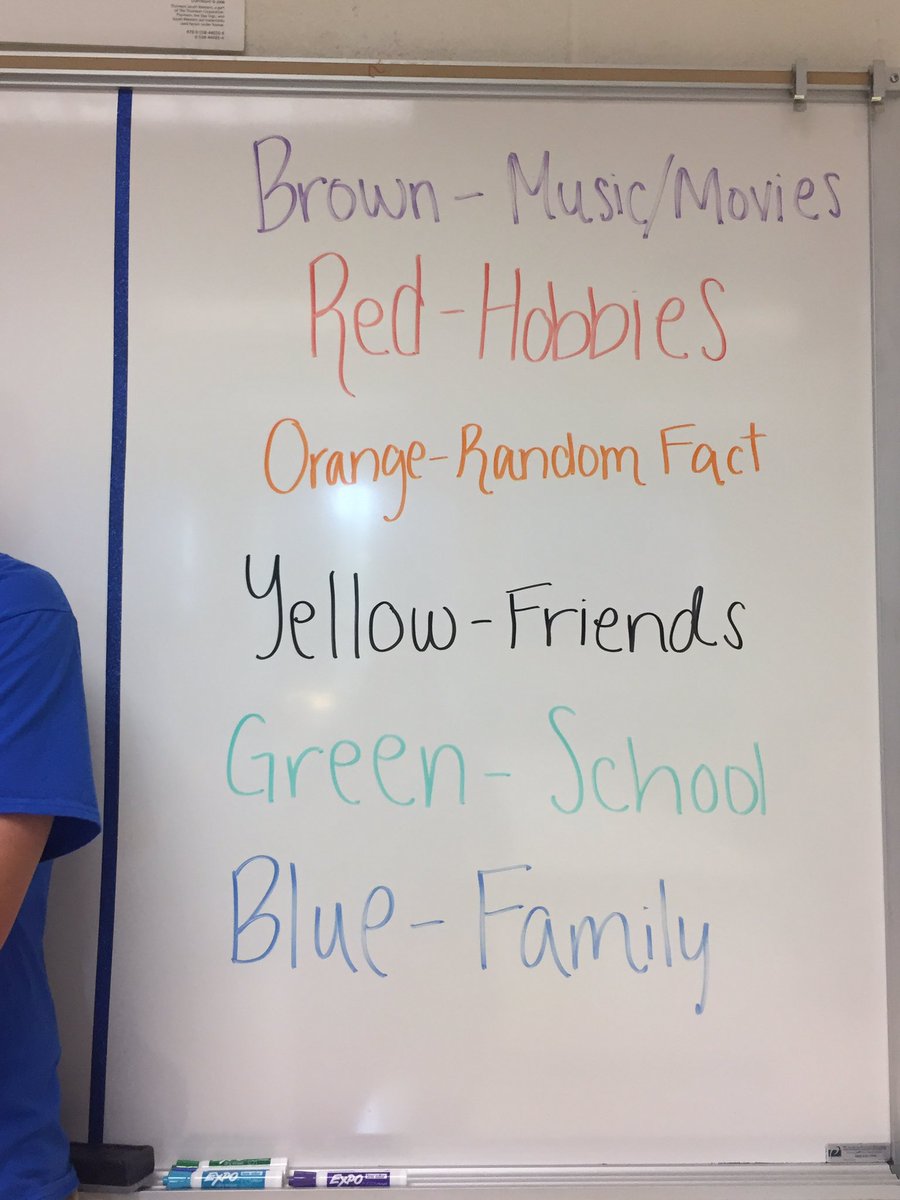 Brown - Music/Movies
Red - Hobbies
Orange - Random Fact
Yellow - Friends
Green - School
Blue - Family
EXPO
EXPO